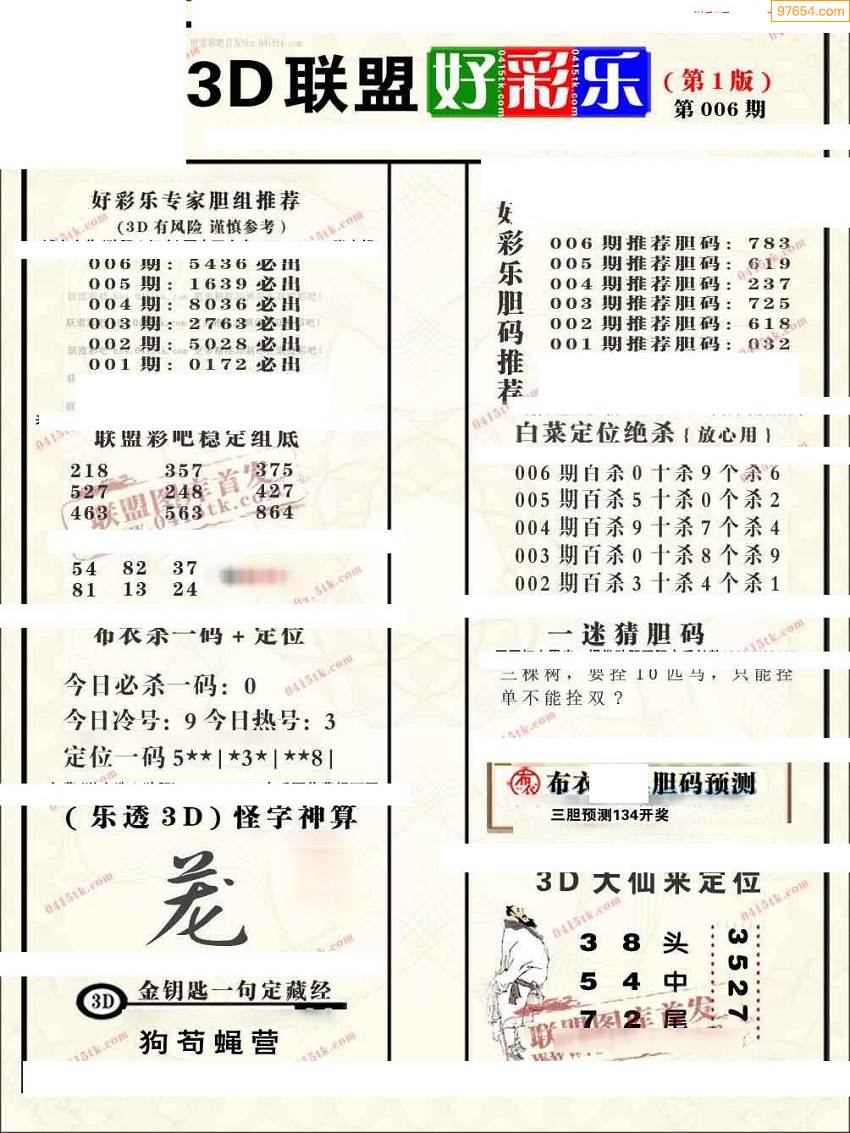 97654.com
3D联盟好彩乐
(第1版)
第006期
好彩乐专家胆组推荐
(3D有风险 谨慎参考)
006期: 5436必出
005期: 1639必出
004期: 8036必出
003期: 2763必出
002期: 5028必出
001期: 0172必出
联盟彩吧稳定组底
218 357 375
527 248 427
463 563 864
54 82 37
81 13 24
布衣杀一码+定位
今日必杀一码: 0
今日冷号: 9 今日热号: 3
定位一码 5**|*3*|**8|
(乐透3D)怪字神算
3D
金钥匙一句定藏经
狗苟蝇营
好彩乐胆码推荐
006期推荐胆码: 783
005期推荐胆码: 619
004期推荐胆码: 237
003期推荐胆码: 725
002期推荐胆码: 618
001期推荐胆码: 032
白菜定位绝杀{放心用}
006期百杀0十杀9个杀6
005期百杀5十杀0个杀2
004期百杀9十杀7个杀4
003期百杀0十杀8个杀9
002期百杀3十杀4个杀1
一迷猜胆码
三棵树，要拴10匹马，只能拴
单不能拴双？
布衣 胆码预测
三胆预测134开奖
3D大仙来定位
3 8 头
5 4 中
7 2 尾
3527
联盟图库首发
0415tk.com